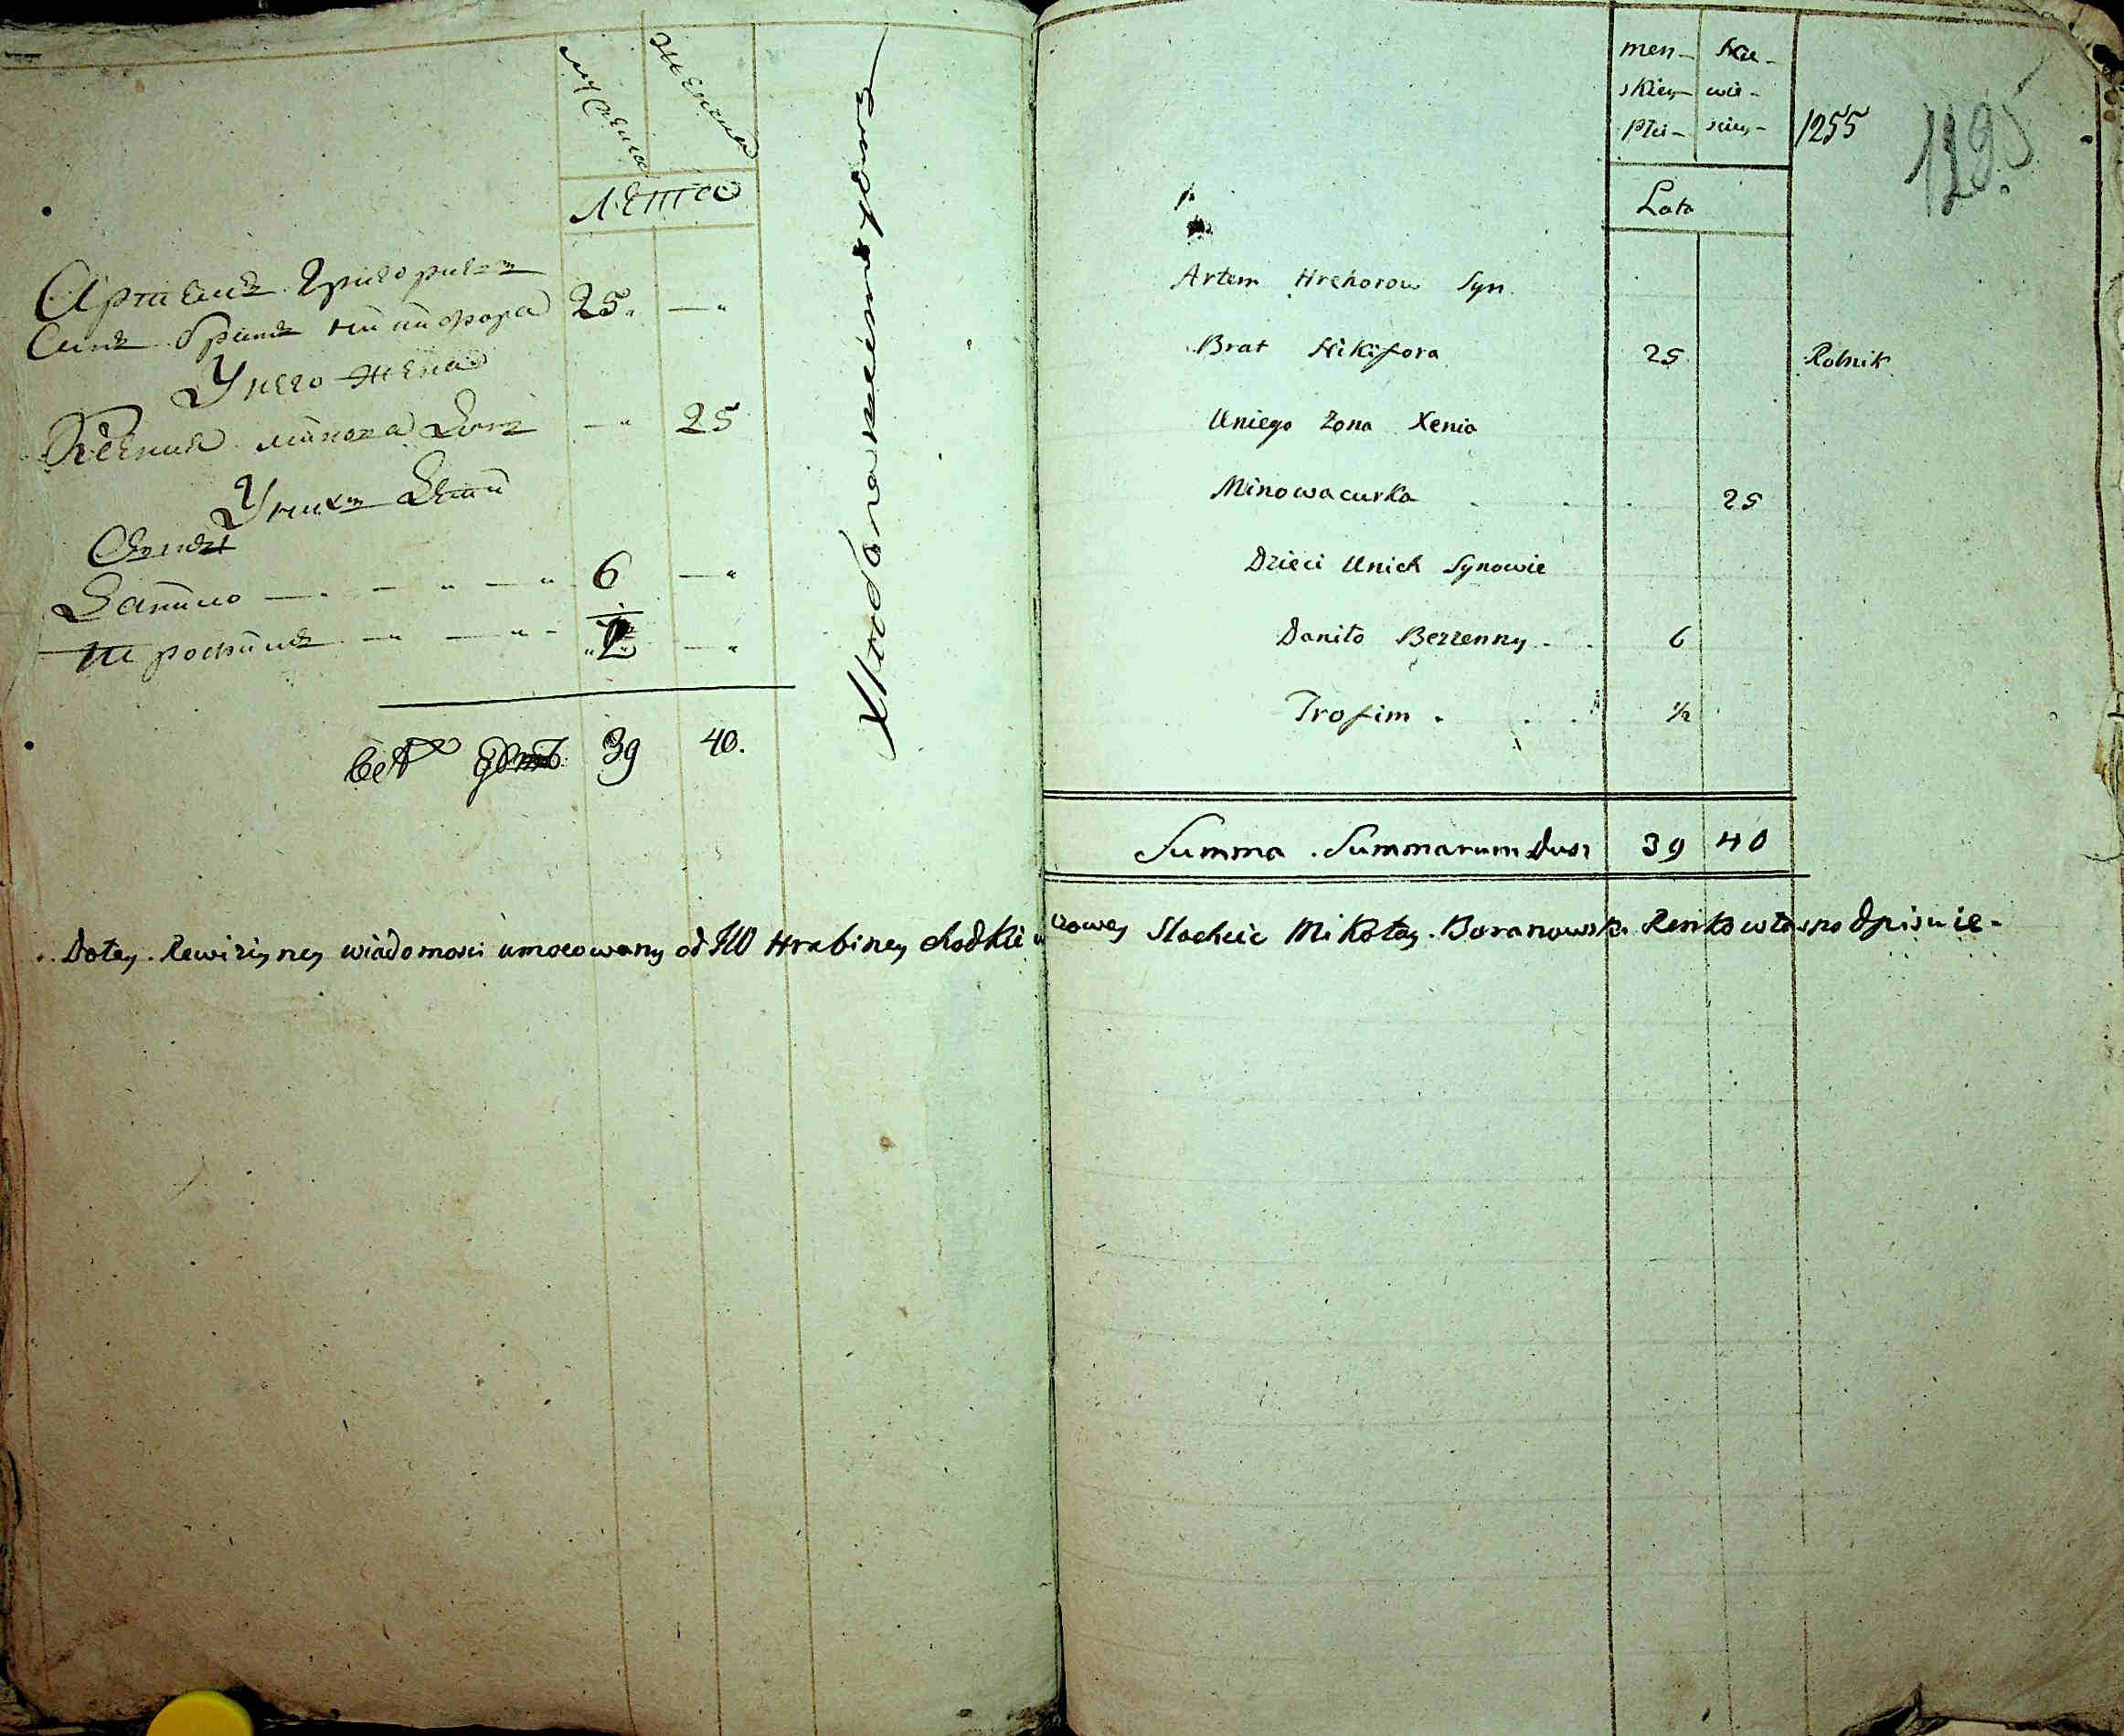 мужеска
женска
лета
Артемъ Григориевъ
Синъ братъ никифора 25 —
У него жена
Ксения минова дочь — 25
У нихъ дети
Сыны
Данило — — — 6 —
трофимъ — — — 1/2 —
всехъ душъ 39 40.
men- Kie-
skiey wie-
płci- skiey-
1255
1295
Lata
Artem Hrehorow Syn
Brat Nikifora 25 Rolnik
Uniego Zona Xenia
Minowa curka . . . 25
Dzieci Unich Synowie
Daniło Bezzenny . . 6
Trofim . . . ½
Summa . Summarum dusz 39 40
Dotey Rewiziyney wiadomosci umocowany od JW Hrabiney chodkiewiczowey Slachcic Mikołay Baranowski Renko własno dpisuie-